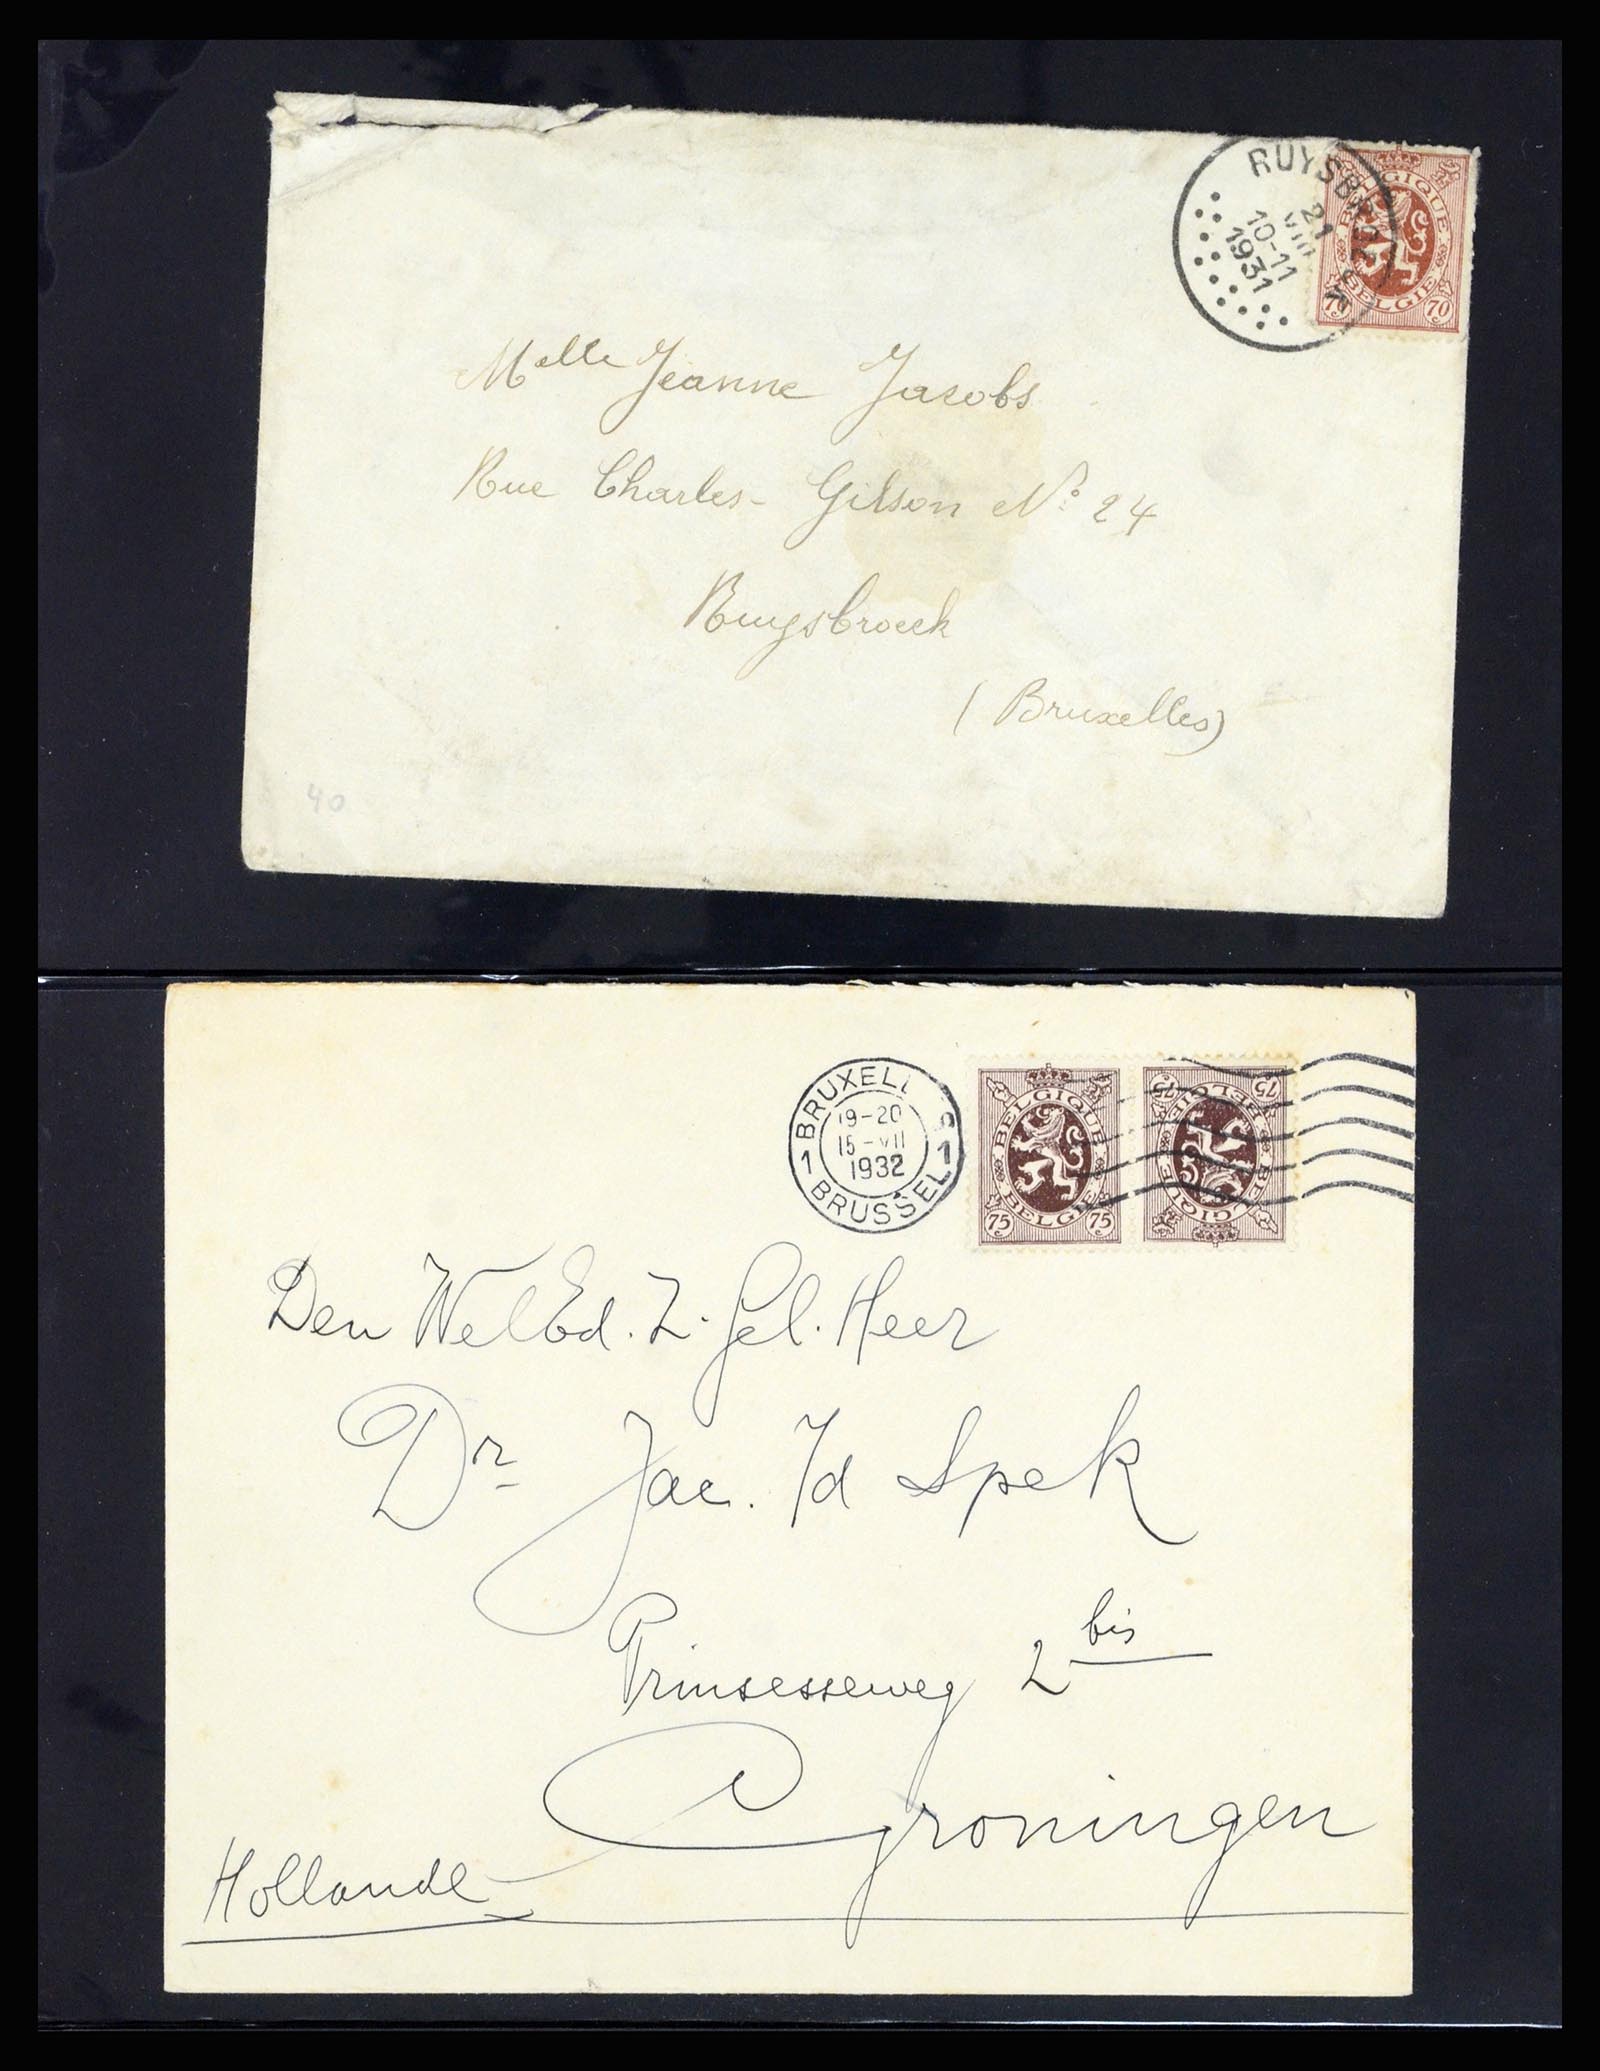 RUYSBROECK
21
VIII
10-11
1931
BELGIQUE
BELGIE
70 70
Melle Jeanne Jacobs
Rue Charles- Gilson No 24
Ruysbroeck
(Bruxelles)
40
BRUXELL S
1 1
19-20
15-VII
1932
BRUSSEL
BELGIQUE
BELGIE
75 75
BELGIQUE
BELGIE
75 75
Den WelEd. Z. Gel. Heer
Dr Jac. Spek
Prinsesseweg 2 bis
Groningen
Hollande